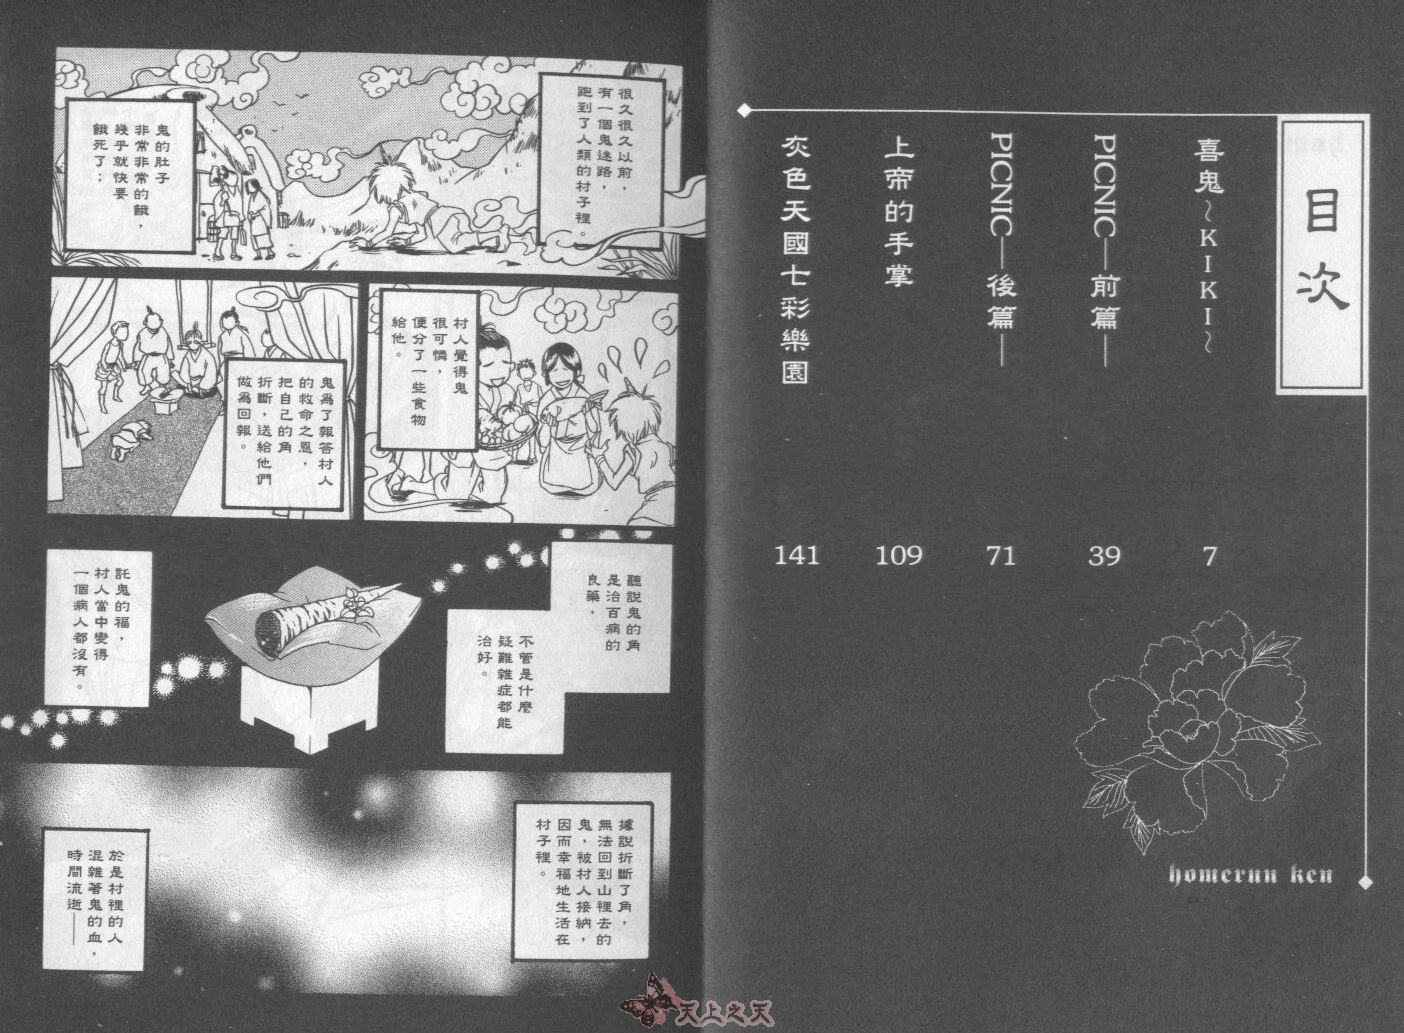 目次
喜鬼～KIKI～
7
PICNIC—前篇—
39
PICNIC—後篇—
71
上帝的手掌
109
灰色天國七彩樂園
141
homerun ken
很久很久以前，
有一個鬼迷路，
跑到了人類的村子裡。
鬼的肚子
非常非常的餓，
幾乎就快要
餓死了；
村人覺得鬼
很可憐，
便分了一些食物
給他。
鬼為了報答村人
的救命之恩，
把自己的角
折斷，送給他們
做為回報。
聽說鬼的角
是治百病的
良藥，
不管是什麼
疑難雜症都能
治好。
託鬼的福，
村人當中變得
一個病人都沒有。
據說折斷了角，
無法回到山裡去的
鬼，被村人接納，
因而幸福地生活在
村子裡。
於是村裡的人
混雜著鬼的血，
時間流逝——
天上之天